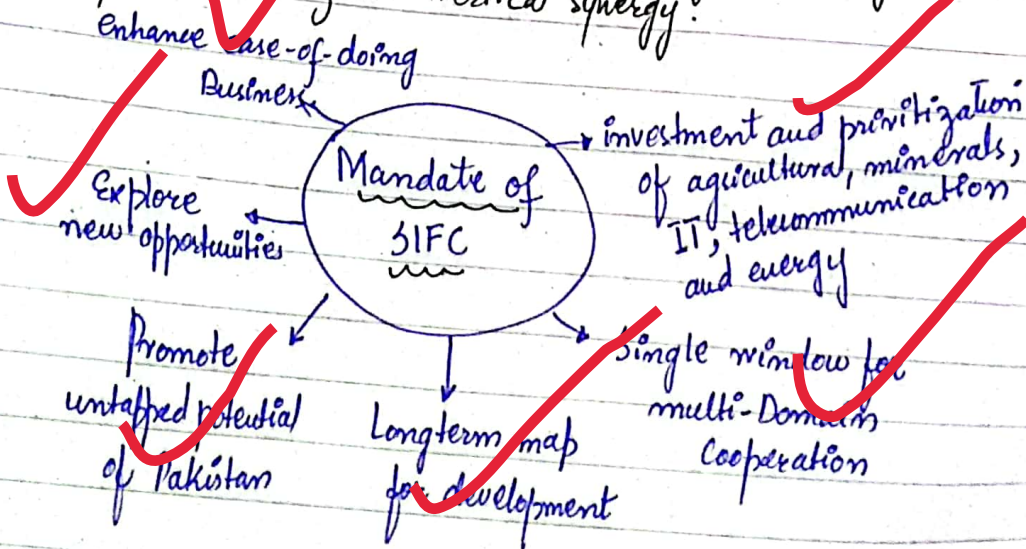 synergy.
enhance ease-of-doing
Business
Mandate of
SIFC
investment and privitization
of agricultural, minerals,
IT, telecommunication
and energy
Explore
new opportunities
Promote
untapped potential
of Pakistan
Longterm map
for development
Single window for
multi-Domain
Cooperation